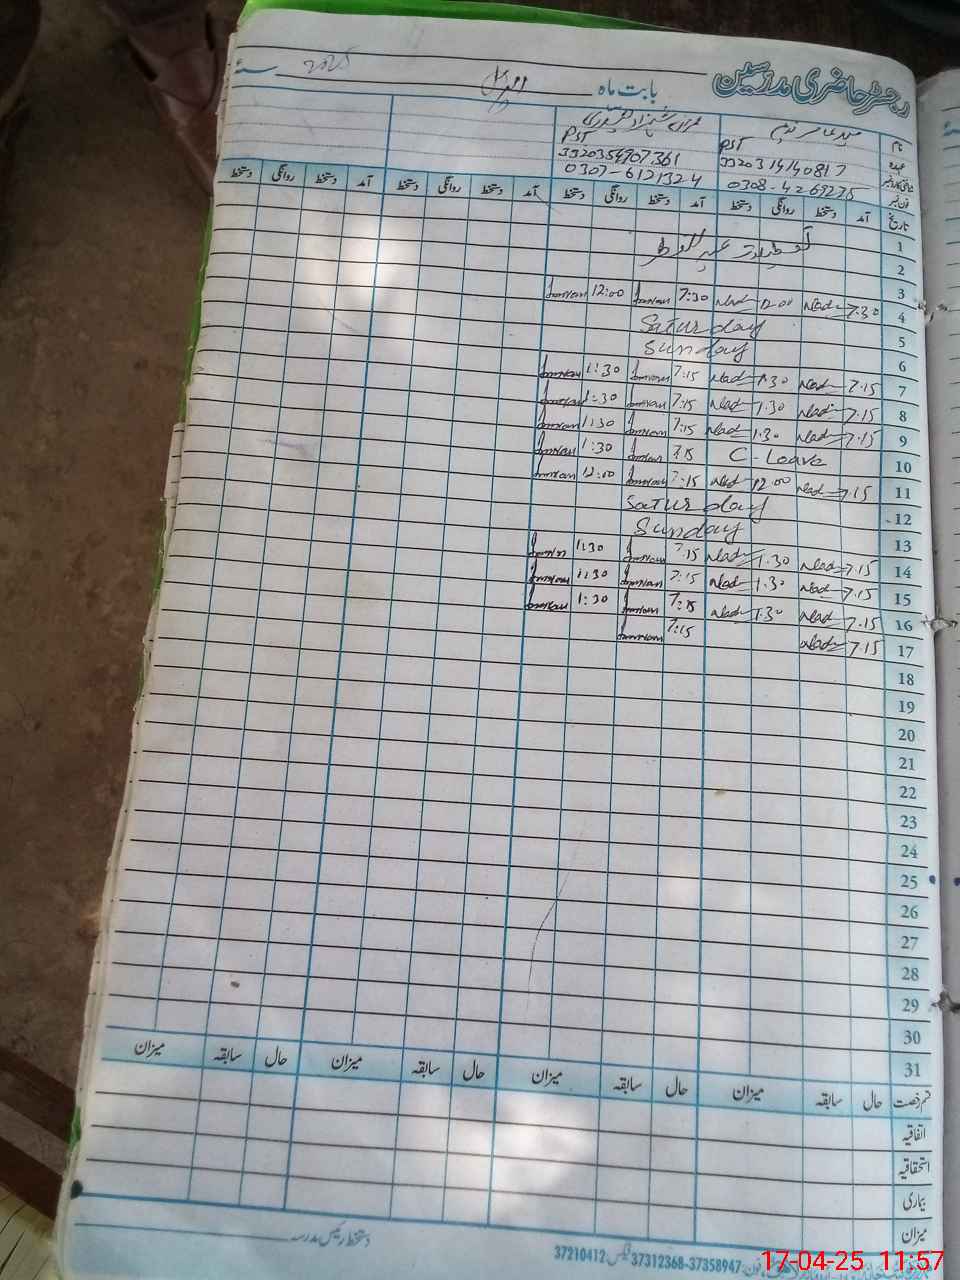 رجسٹر حاضری مدرسین بابت ماہ اپریل 2025 سنہ
نام
عہدہ PST PST
شناختی کارڈ نمبر 3320354907361
فون نمبر 0308-4269275 0307-6121324
تاریخ آمد دستخط روانگی دستخط آمد دستخط روانگی دستخط آمد دستخط روانگی دستخط آمد دستخط روانگی دستخط
1
2 تعطیلات عید الفطر
3
4 7.30 12.00 7:30 Imran 12:00 Imran
5 Saturday
6 Sunday
7 7.15 1.30 7:15 Imran 1:30 Imran
8 7.15 1.30 7:15 Imran 1:30 Imran
9 7.15 1.30 7:15 Imran 1:30 Imran
10 C-Leave 7:15 Imran 1:30 Imran
11 7.15 12.00 7:15 Imran 12:00 Imran
12 Saturday
13 Sunday
14 7.15 1.30 7:15 Imran 1:30 Imran
15 7.15 1.30 7:15 Imran 1:30 Imran
16 7.15 1.30 7:15 Imran 1:30 Imran
17 7.15 7:15 Imran
18
19
20
21
22
23
24
25
26
27
28
29
30
31
قسم رخصت حال سابقہ میزان حال سابقہ میزان حال سابقہ میزان حال سابقہ میزان
اتفاقیہ
استحقاقیہ
بیماری
میزان
دستخط رئیس مدرسہ
فون: 37312368-37358947 فیکس: 37210412
17-04-25 11:57